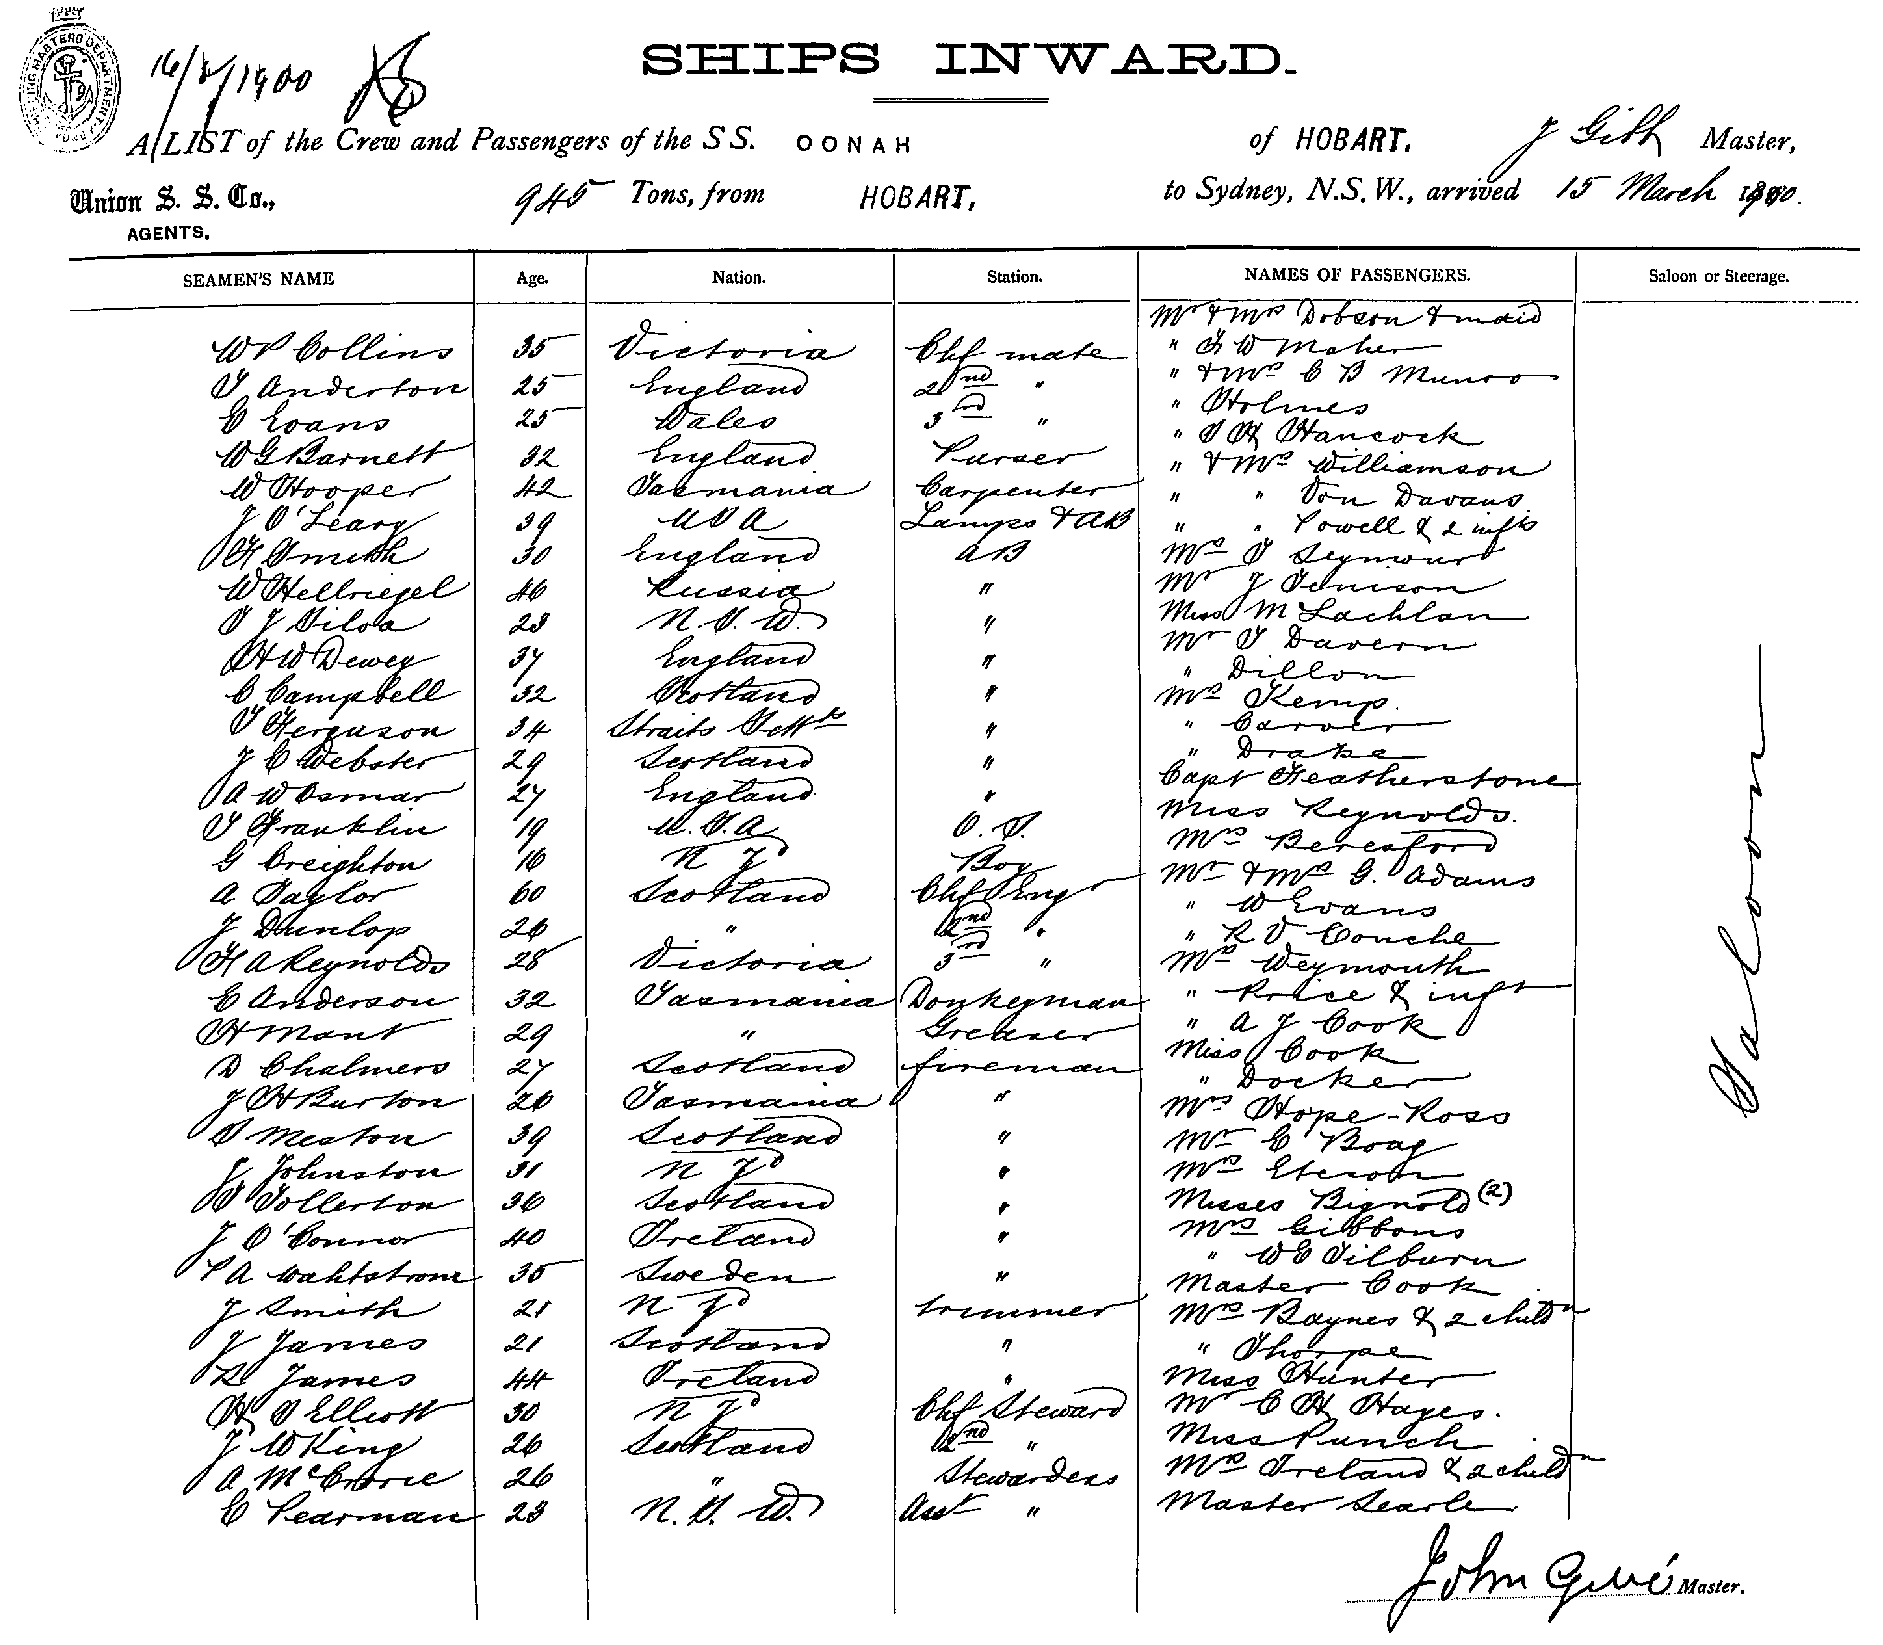 16/3/1900
SHIPS INWARD.
A LIST of the Crew and Passengers of the S S. OONAH of HOBART. J Gibb Master,
Union S. S. Co., AGENTS. 945 Tons, from HOBART, to Sydney, N.S.W., arrived 15 March 1900.
SEAMEN'S NAME Age. Nation. Station. NAMES OF PASSENGERS. Saloon or Steerage.
Mr & Mrs Dobson & maid
W P Collins 35 Victoria Chf mate " F W Maher
T Anderton 25 England 2nd " " & Mrs C B Munro
E Evans 25 Wales 3rd " " Holmes
W G Barnett 32 England Purser " T H Hancock
W Hooper 42 Tasmania Carpenter " & Mrs Williamson
J O'Leary 39 U S A Lamps & AB " " Von Davans
" " Powell & 2 infts
H Smith 30 England AB Mrs T Seymour
W Hellriegel 46 Russia " Mr J Jenison
T J Silva 23 N. S. W. " Miss McLachlan
H W Dewey 37 England " Mr T Davern
" Dillon
C Campbell 32 Scotland " Mrs Kemp.
T Ferguson 34 Straits Settls " " Carver
J C Webster 29 Scotland " " Drake
Capt Featherstone
A W Osmar 27 England " Miss Reynolds.
T Franklin 19 U. S. A O. S. Mrs Beresford
G Creighton 16 N Zd Boy Mr & Mrs G. Adams
A Taylor 60 Scotland Chf Engr " W Evans
J Dunlop 26 " 2nd " " R V Conche
H A Reynolds 28 Victoria 3rd " Mrs Weymouth
E Anderson 32 Tasmania Donkeyman " Price & inft
H Mant 29 " Greaser " A J Cook
D Chalmers 27 Scotland fireman Miss Cook
" Docker
J H Burton 26 Tasmania " Mrs Hope-Ross
D Meston 39 Scotland " Mr E Boag
J Johnston 31 N Zd " Mrs Eteson
D Tollerton 36 Scotland " Misses Bignold (2)
J O'Connor 40 Ireland " Mrs Gibbons
" W E Tilburn
P A Wahlstrom 35 Sweden " Master Cook
J Smith 21 N Zd trimmer Mrs Baynes & 2 childn
J James 21 Scotland " " Thorpe
R James 44 Ireland " Miss Hunter
H S Elliott 30 N Zd Chf Steward Mr C H Hayes.
J W King 26 Scotland 2nd " Miss Punch
A McCrorie 26 " Stewardess Mrs Ireland & 2 childn
E Pearman 23 N. S. W. Asst " Master Searle
Saloon
John Gibb Master.